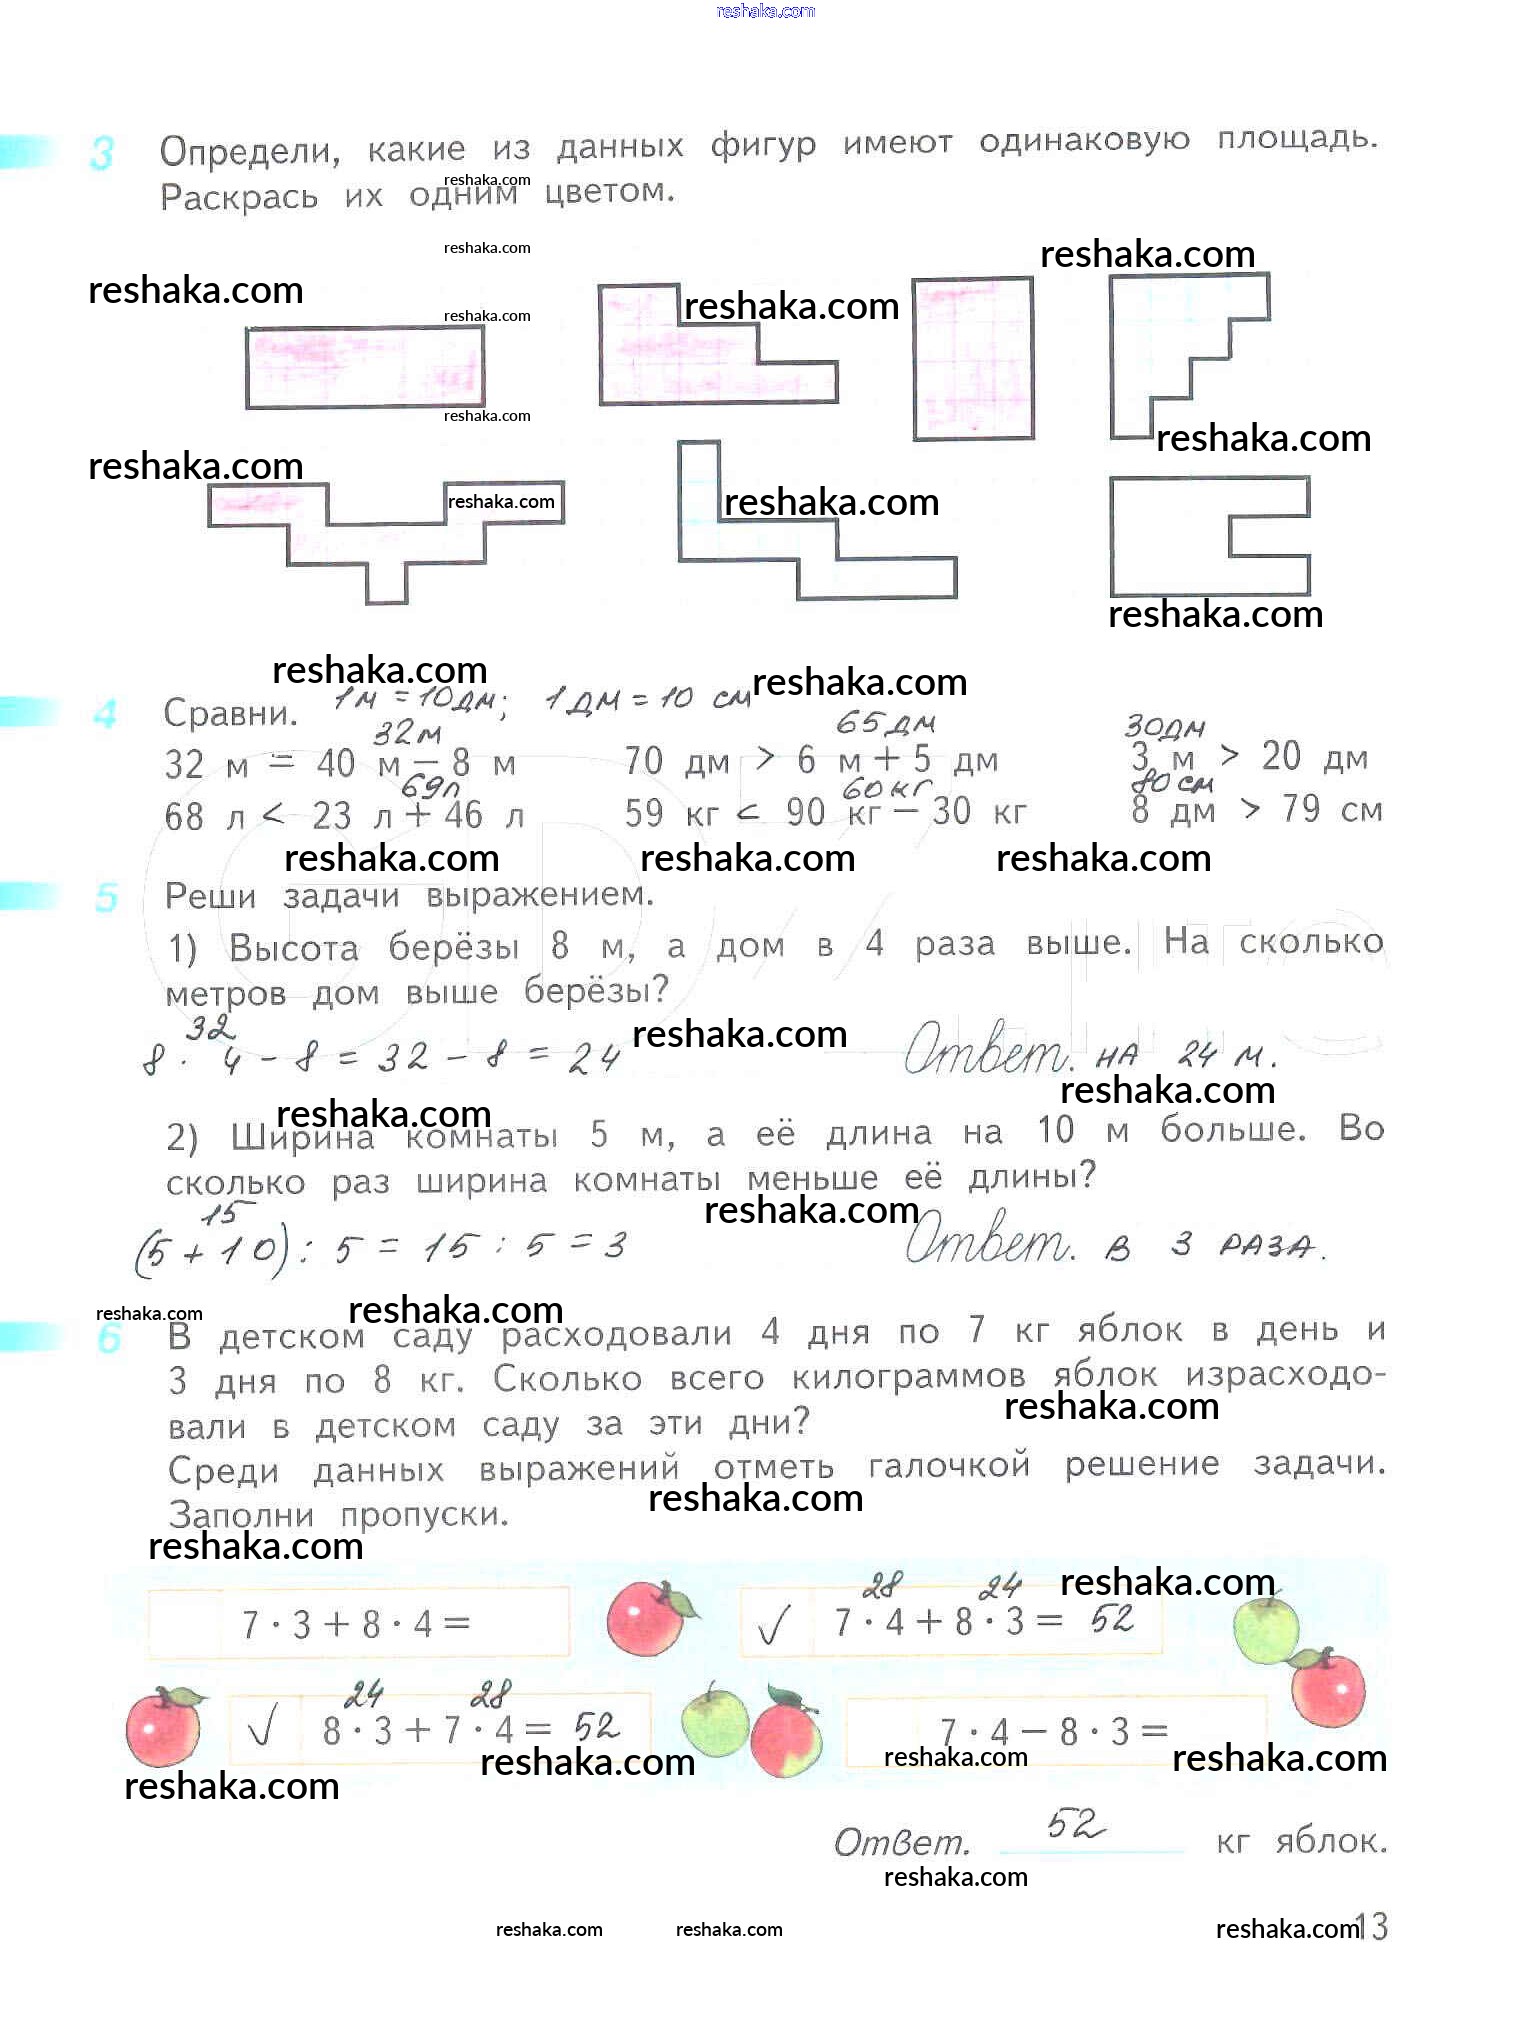 reshaka.com
3 Определи, какие из данных фигур имеют одинаковую площадь.
reshaka.com
Раскрась их одним цветом.
reshaka.com
reshaka.com
reshaka.com
reshaka.com
reshaka.com
reshaka.com
reshaka.com
reshaka.com
reshaka.com
reshaka.com
reshaka.com
reshaka.com
reshaka.com
reshaka.com
4 Сравни. 1 м = 10 дм; 1 дм = 10 см
32 м 65 дм 30 дм
32 м = 40 м − 8 м 70 дм > 6 м + 5 дм 3 м > 20 дм
69 л 60 кг 80 см
68 л < 23 л + 46 л 59 кг < 90 кг − 30 кг 8 дм > 79 см
reshaka.com reshaka.com reshaka.com
5 Реши задачи выражением.
1) Высота берёзы 8 м, а дом в 4 раза выше. На сколько
метров дом выше берёзы?
32 reshaka.com
8 · 4 − 8 = 32 − 8 = 24 Ответ. на 24 м.
reshaka.com
reshaka.com
2) Ширина комнаты 5 м, а её длина на 10 м больше. Во
сколько раз ширина комнаты меньше её длины?
15 reshaka.com
(5 + 10) : 5 = 15 : 5 = 3 Ответ. в 3 раза.
reshaka.com reshaka.com
6 В детском саду расходовали 4 дня по 7 кг яблок в день и
3 дня по 8 кг. Сколько всего килограммов яблок израсходо-
reshaka.com
вали в детском саду за эти дни?
Среди данных выражений отметь галочкой решение задачи.
reshaka.com
Заполни пропуски.
reshaka.com
28 24 reshaka.com
7 · 3 + 8 · 4 = ✓ 7 · 4 + 8 · 3 = 52
24 28
✓ 8 · 3 + 7 · 4 = 52 7 · 4 − 8 · 3 =
reshaka.com reshaka.com reshaka.com
reshaka.com
Ответ. 52 кг яблок.
reshaka.com
reshaka.com reshaka.com reshaka.com 13